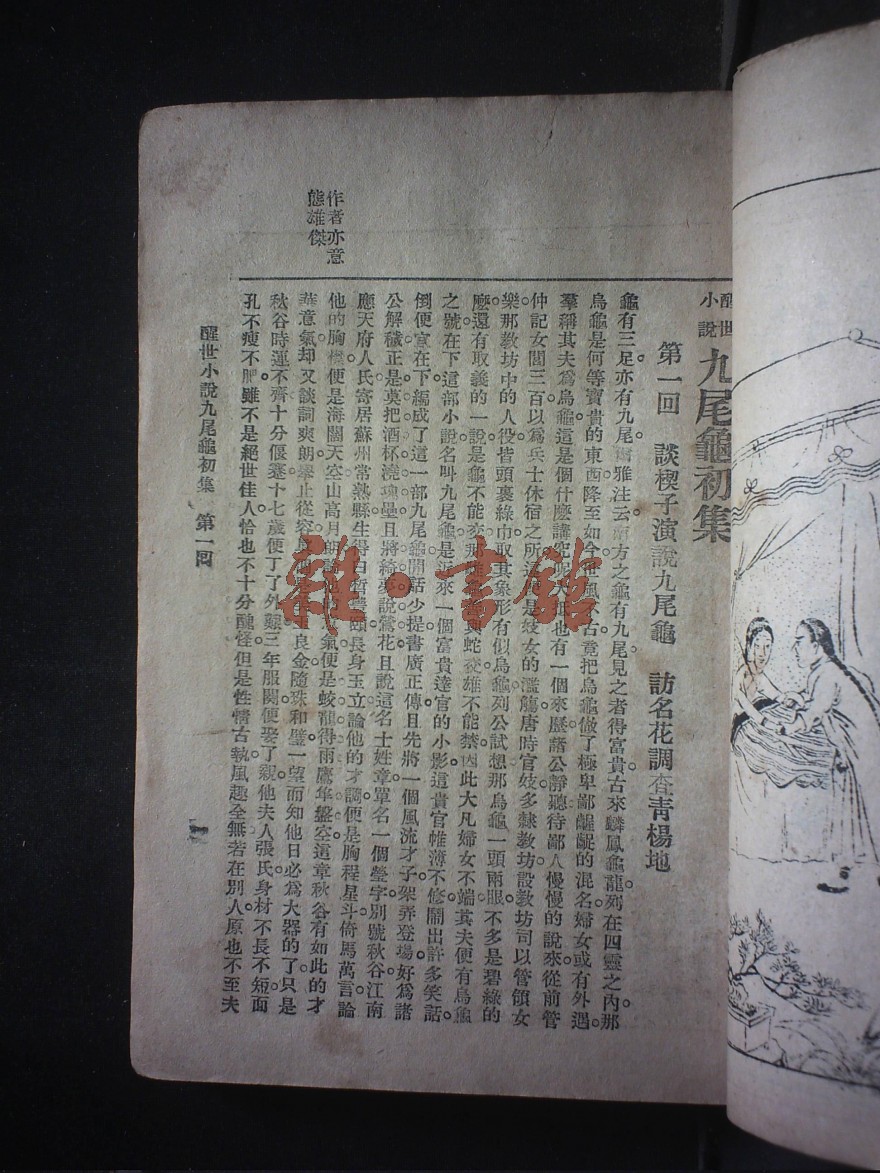 醒世小說 九尾龜初集
第一回 談楔子演說九尾龜 訪名花調查青楊地
龜有三足亦有九尾爾雅注云南方之龜有九尾見之者得富貴古來麟鳳龜龍列在四靈之內那
烏龜是何等寶貴的東西降至如今世風不古竟把烏龜做了極卑鄙齷齪的混名婦女或有外遇
羣稱其夫為烏龜這是個什麼講究呢大抵也有一個來歷諸公靜聽待鄙人慢慢的說來從前管
仲設女閭三百以為兵士休宿之所這便是妓女的濫觴唐時官妓多隸教坊設教坊司以管領女
樂那教坊中的人役皆頭裹綠巾取其象形有似烏龜列公試想那烏龜一頭兩眼不多是碧綠的
麼還有取義的一說是龜不能交那雌龜善與蛇交雄不能禁因此大凡婦女不端其夫便有烏龜
之號在下這部小說名叫九尾龜是近來一個富貴達官的小影這貴官帷薄不修鬧出許多笑話
倒便宜在下編成了這一部九尾龜閒話少提書廣正傳且先將一個風流才子架弄登場好為諸
公解穢正是莫把酒杯澆塊壘且將綺夢說鶯花且說這名士姓章單名一個瑩字別號秋谷江南
應天府人氏寄居蘇州常熟縣生得白皙豐頤長身玉立論他的才調便是胸程星斗倚馬萬言論
他的胸襟便是海闊天空山高月朗論他的意氣便是蛟龍得雨鷹隼盤空這章秋谷有如此的才
華意氣却又談詞爽朗舉止從容真個是美玉良金隨珠和璧一望而知他日必為大器的了只是
秋谷時運不齊十分偃蹇十七歲便丁了外艱三年服闋便娶了親他夫人張氏身材不長不短面
孔不瘦不肥雖不是絕世佳人恰也不十分醜怪但是性情古執風趣全無若在別人原也不至夫
作者亦意
態雄傑
醒世小說九尾龜初集 第一回
一
雜·書館